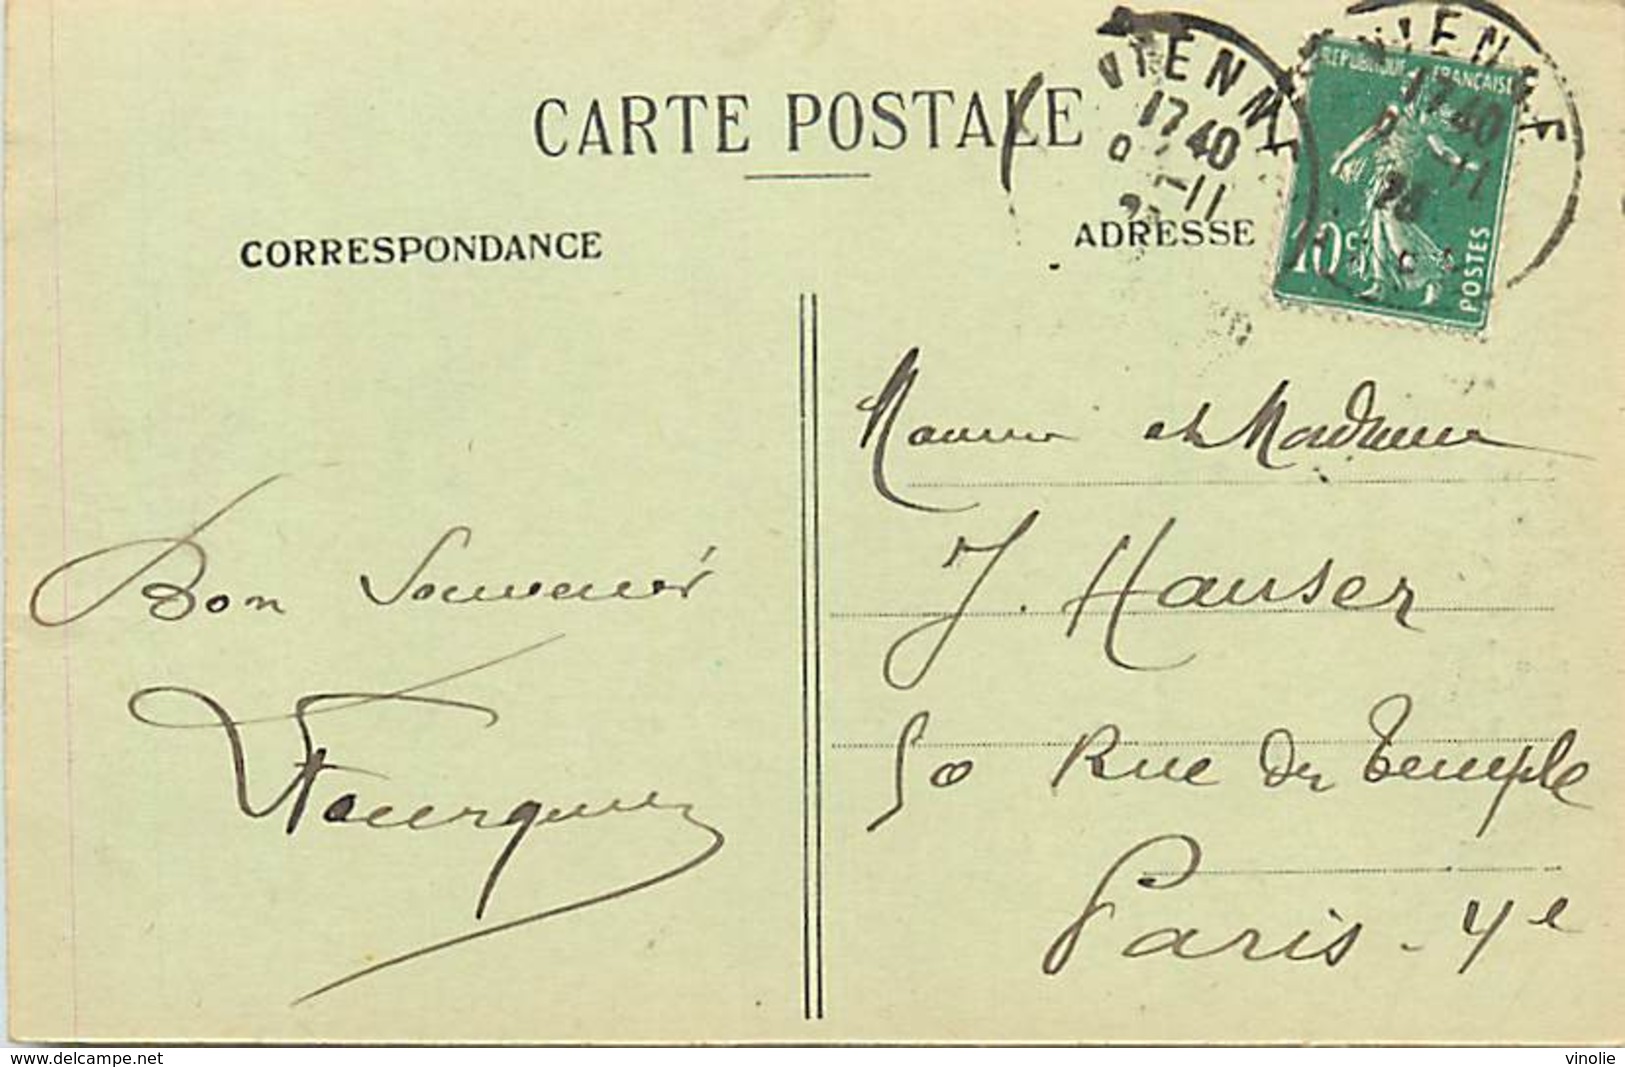 CARTE POSTALE
CORRESPONDANCE
ADRESSE
VIENNE
17 40
-11
VIENNE
17 40
-11
REPUBLIQUE FRANÇAISE
10c
POSTES
et Madame
J. Hauser
50 Rue du Temple
Paris - 4e
Bon Souvenir
www.delcampe.net
vinolie